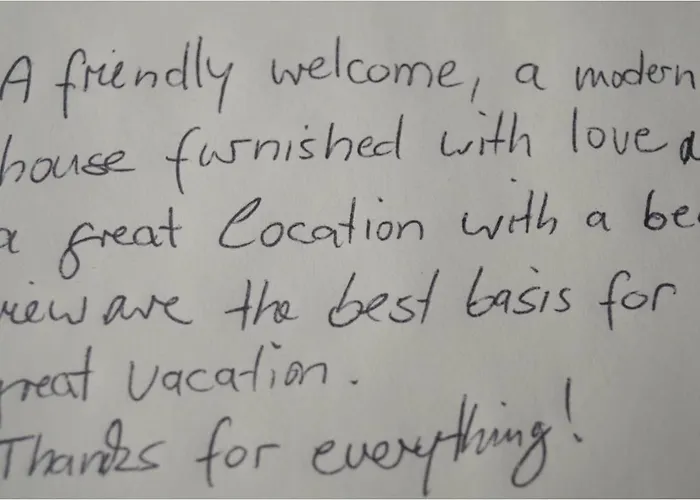 A friendly welcome, a modern
house furnished with love
a great location with a
view are the best basis for
great vacation.
Thanks for everything!